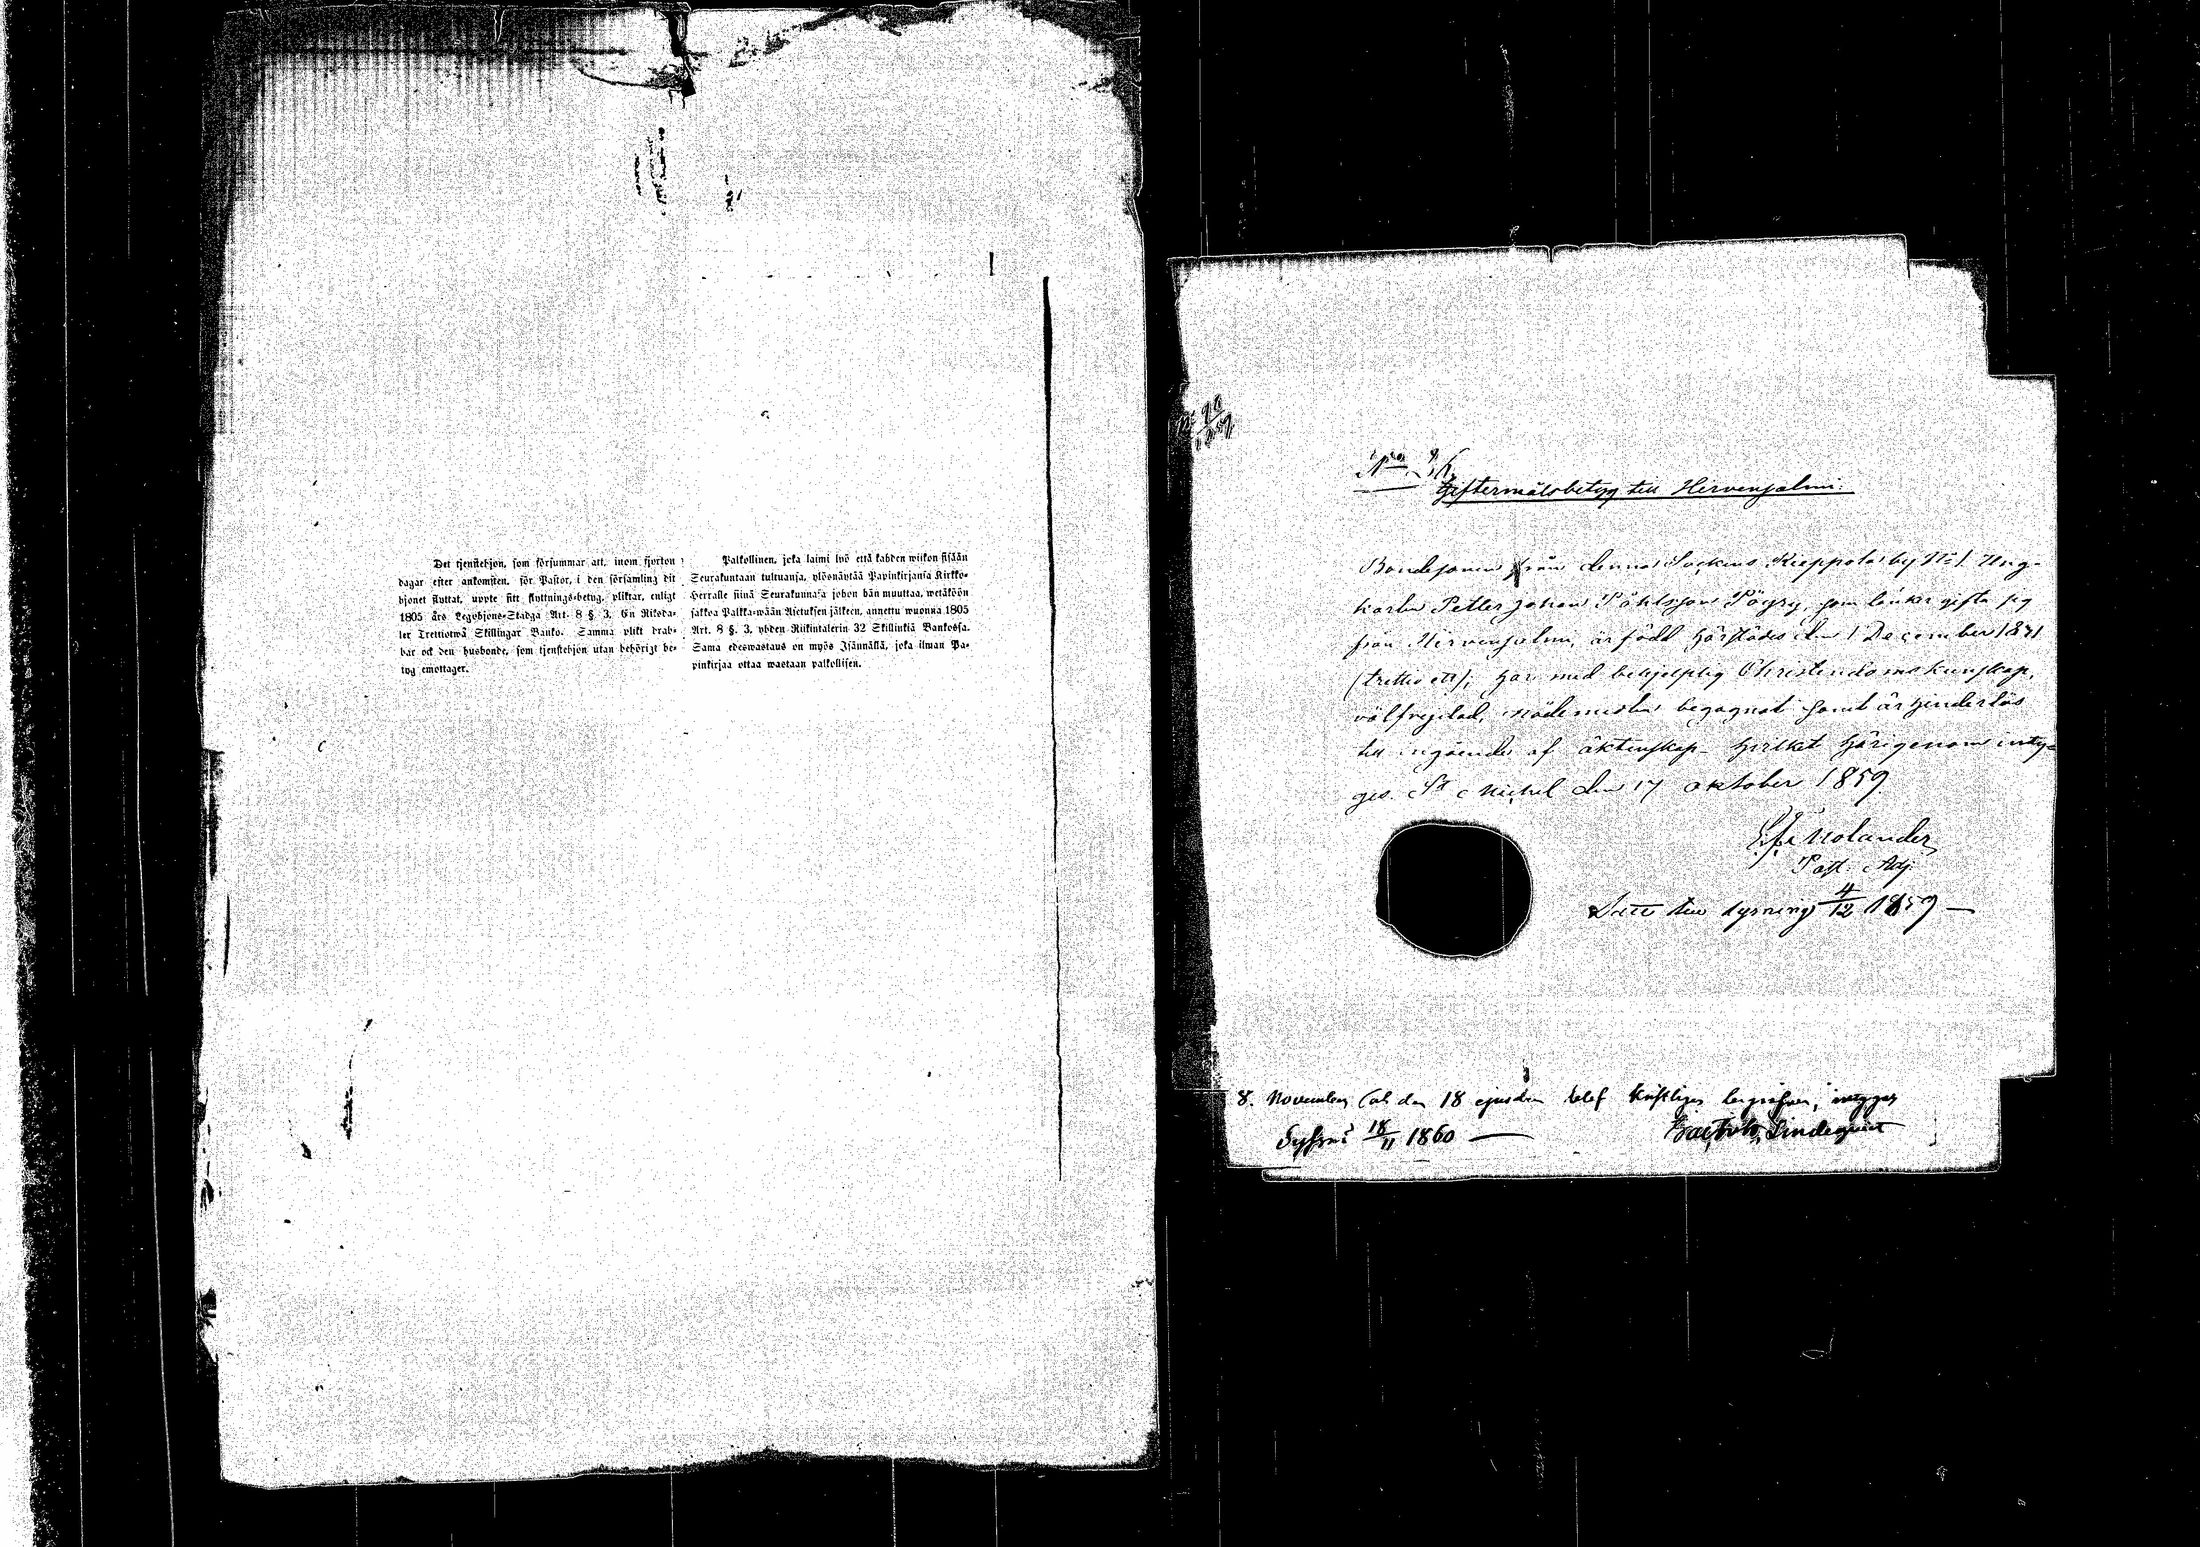 Det tjenstehjon, som försummar att, inom fjorton
dagar efter ankomsten, för Pastor, i den församling dit
hjonet flyttat, uppte sitt flyttnings-betyg, pliktar, enligt
1805 års Legohjons-Stadga Art. 8 §. 3. En Riksda-
ler Trettiotwå Skillingar Banko. Samma plikt drab-
bar ock den husbonde, som tjenstehjon utan behörigt be-
tyg emottager.
Palkollinen, joka laimi lyö että kahden wiikon sisään
Seurakuntaan tultuansa, ylösnäyttää Papinkirjansa Kirkko-
Herralle siinä Seurakunnasa johon hän muuttaa, wetäköön
sakkoa Palkka-wään Asetuksen jälkeen, annettu wuonna 1805
Art. 8 §. 3, yhden Riikintalerin 32 Skillinkiä Bankossa.
Sama edeswastaus on myös Isännällä, joka ilman Pa-
pinkirjaa ottaa wastaan palkollisen.
Giftermålsbetyg till Hirvensalmi.
Bondesonen från denna Sockens Kieppola by No 1 Ung-
karln Petter Johan Påhlsson Pöyry, som tänker gifta sig
från Hirvensalmi, är född härstädes den 1 December 1831
(trettio ett); har med behjelplig Christendomskunskap,
välfrejdad, nådemedlen begagnat samt är hinderlös
till ingående af äktenskap hvilket härigenom inty-
ges. St Michel den 17 Oktober 1859.
Molander
Past. Adj.
till lysning 4/12 1859 —
8. November och den 18 ejusdem blef kristligen begrafven, intygar
18/11 1860 — Lindequist